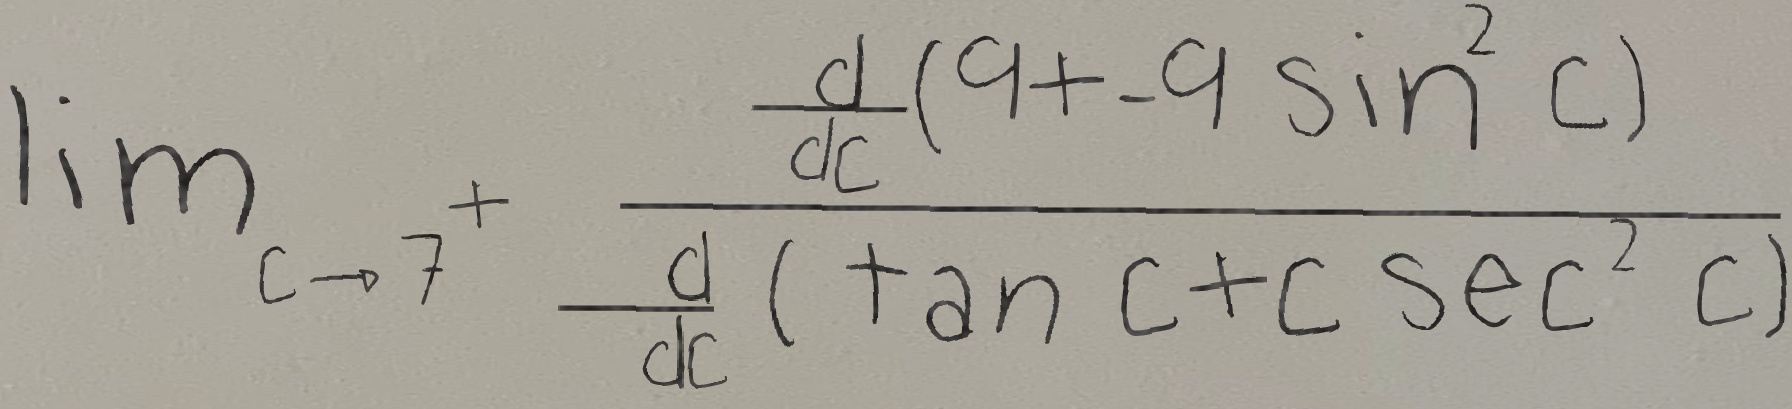 \lim_{c \to 7^+} \frac{\frac{d}{dc}(9+-9 \sin^2 c)}{\frac{d}{dc}(\tan c + c \sec^2 c)}